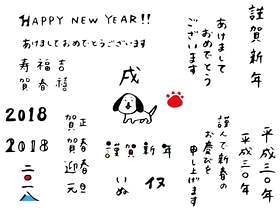 HAPPY NEW YEAR!!
あけましておめでとうございます
寿福吉
賀春禧
2018
2018
二〇一八
賀正
賀春
迎春
元旦
戌
謹賀新年
いぬ
イヌ
あけまして
おめでとう
ございます
謹賀新年
謹んで新春の
お慶びを
申し上げます
平成三〇年
平成三〇年